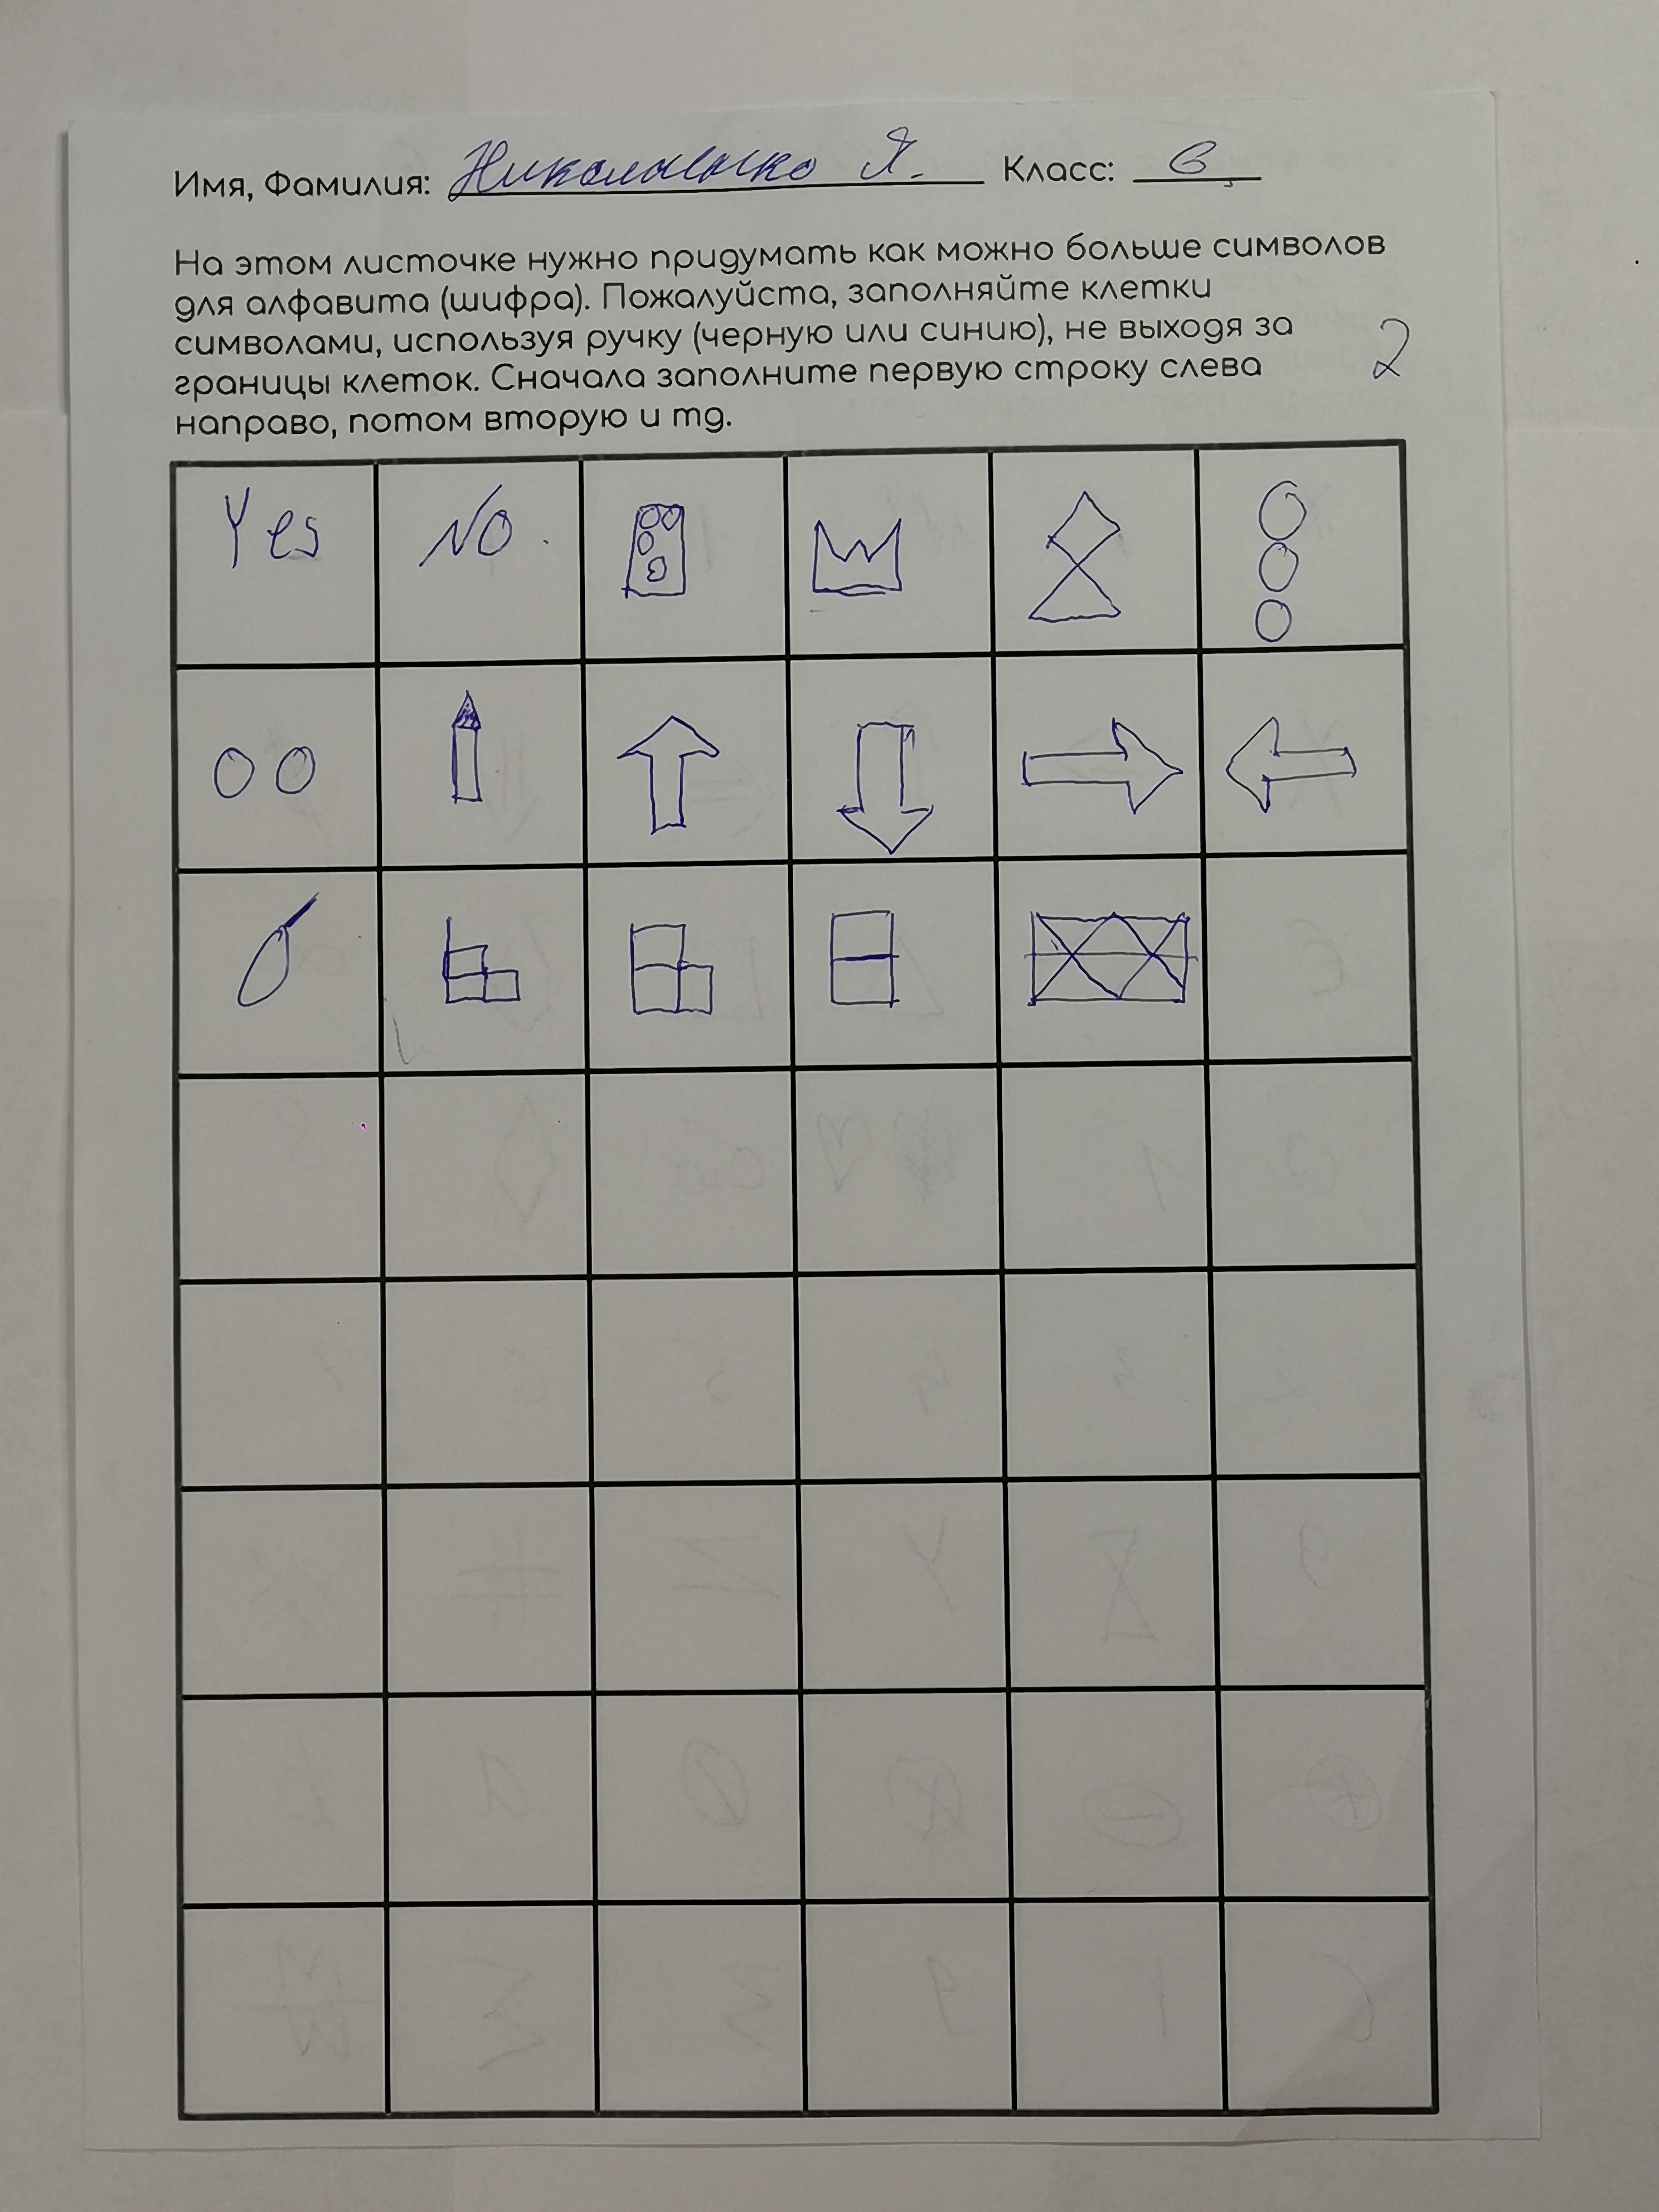 Имя, Фамилия: Николаенко Я. Класс: 6
На этом листочке нужно придумать как можно больше символов
для алфавита (шифра). Пожалуйста, заполняйте клетки
символами, используя ручку (черную или синию), не выходя за
границы клеток. Сначала заполните первую строку слева
направо, потом вторую и тд.
2
Yes NO